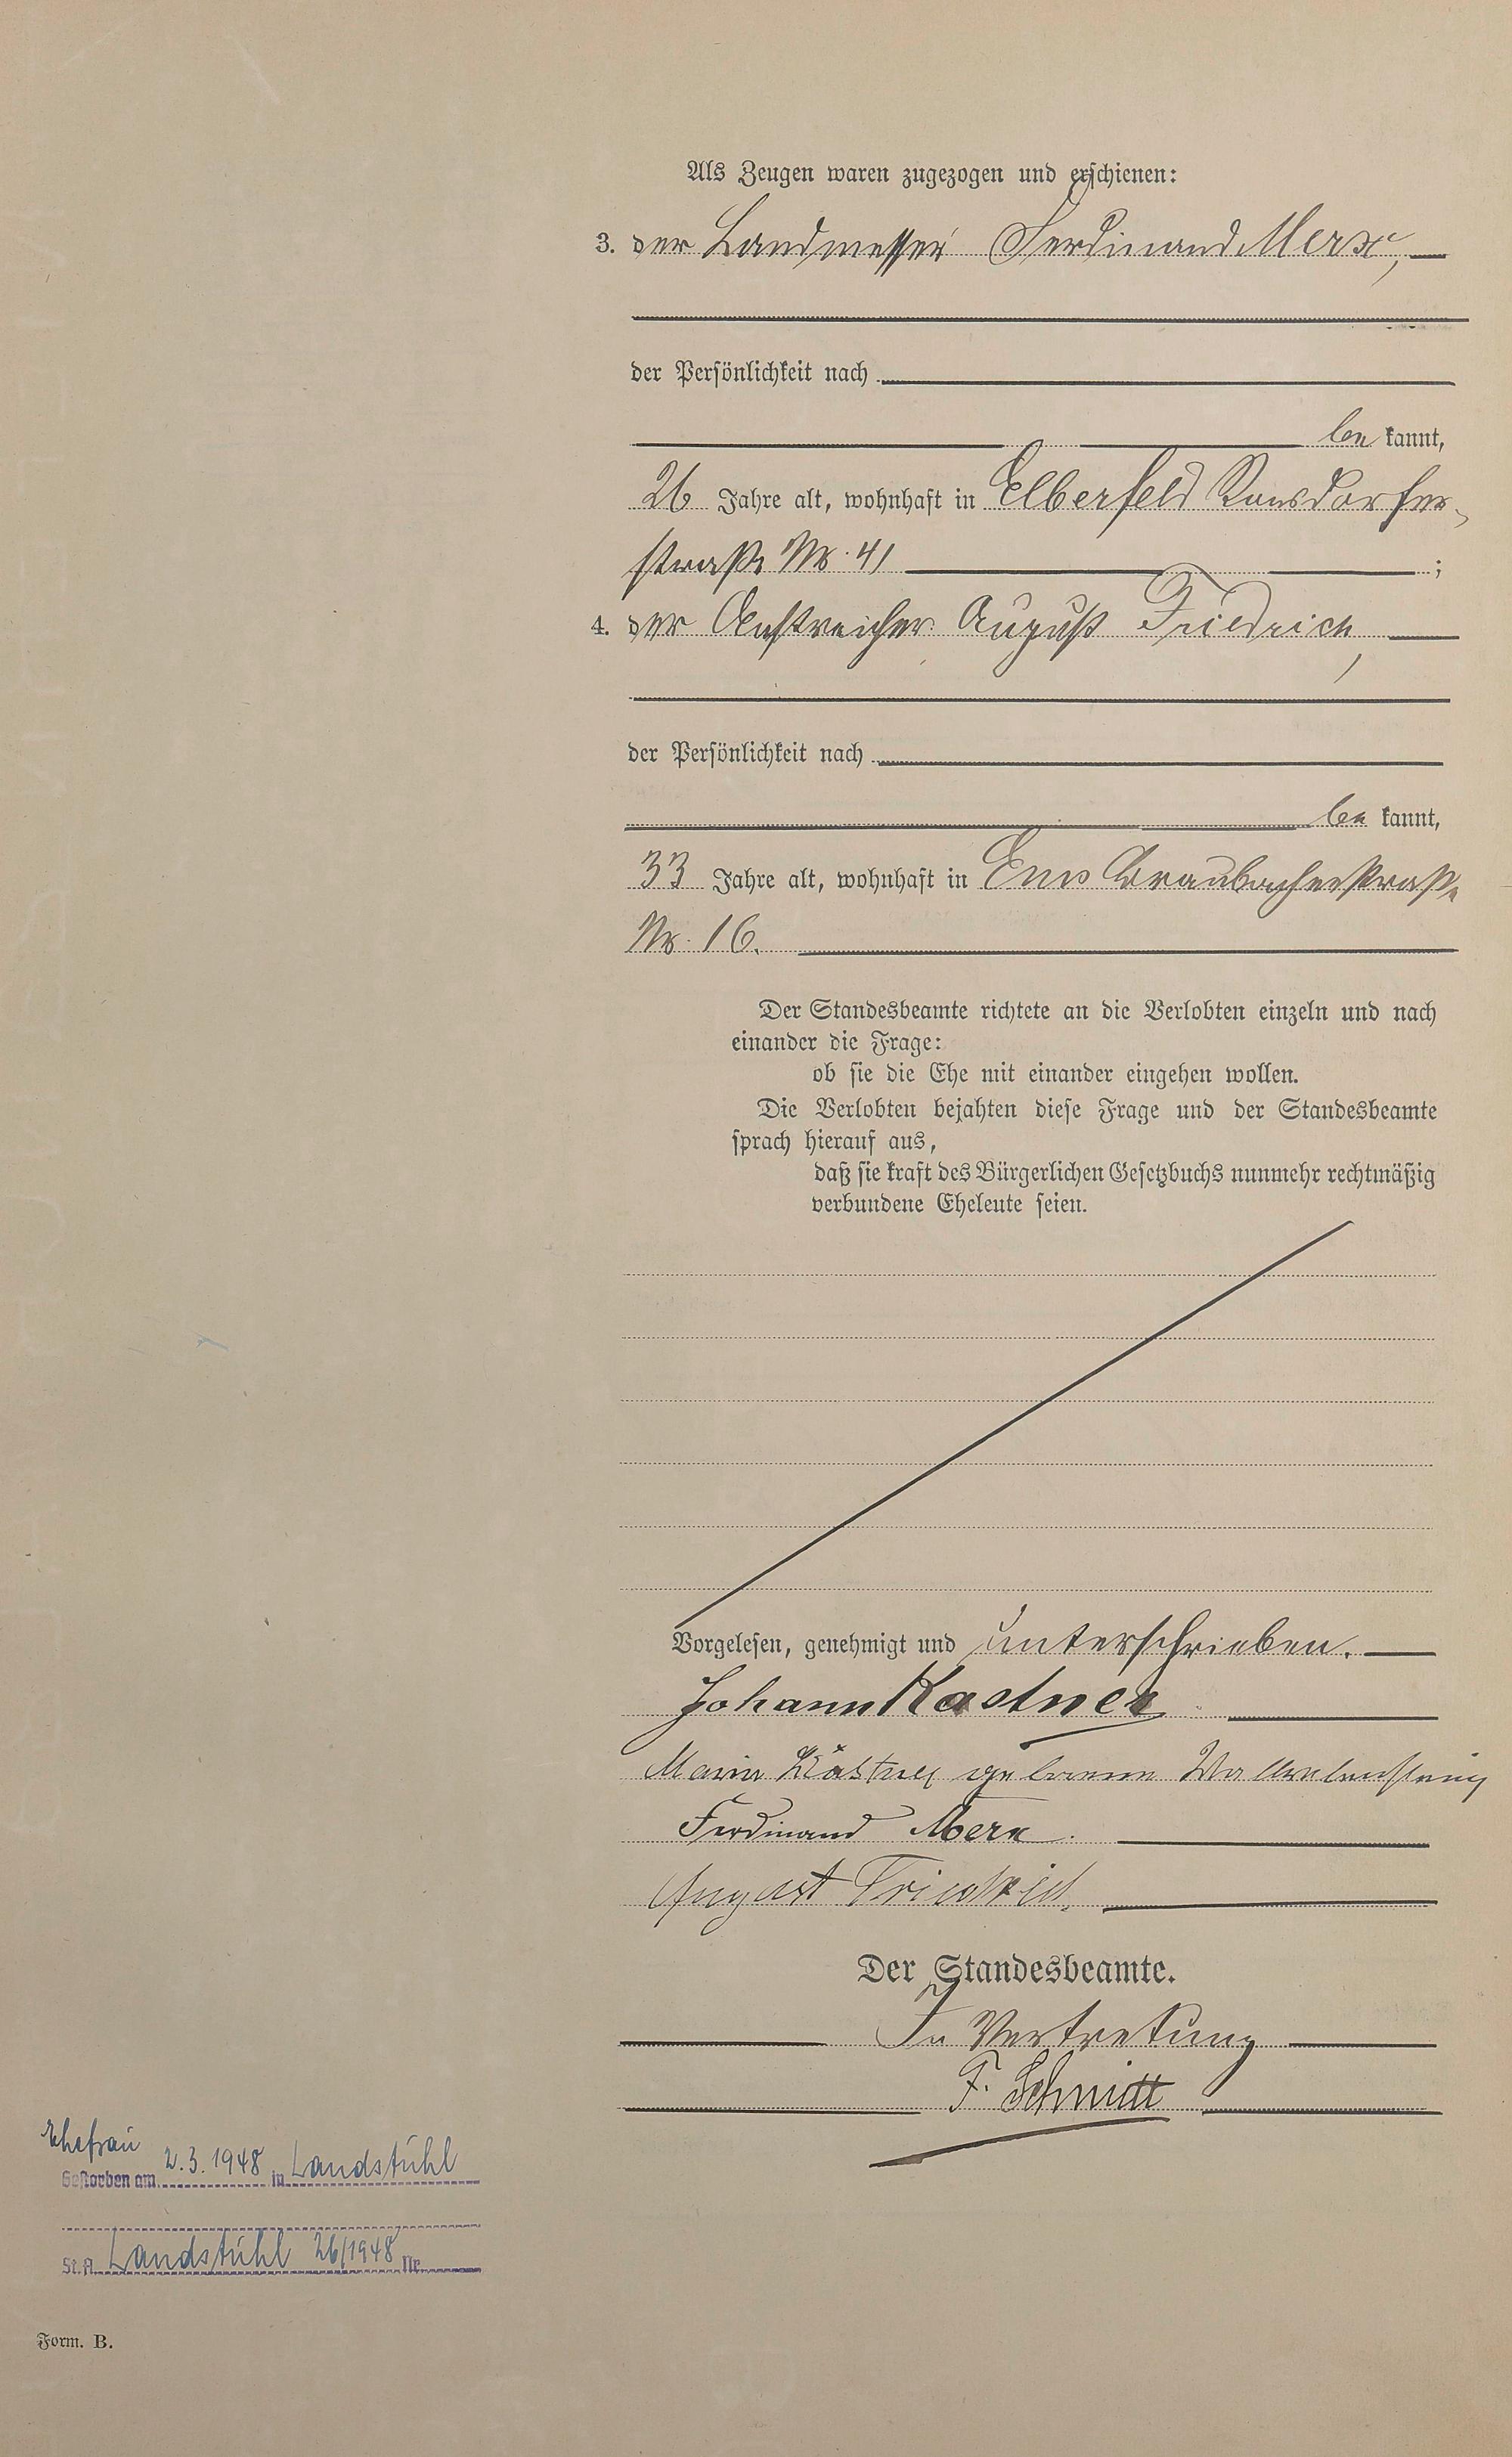 Als Zeugen waren zugezogen und erschienen:
3. der Landmesser Ferdinand Merx,
der Persönlichkeit nach
be kannt,
26 Jahre alt, wohnhaft in Elberfeld Ronsdorfer-
straße Nr. 41 ;
4. der Anstreicher August Friedrich,
der Persönlichkeit nach
be kannt,
33 Jahre alt, wohnhaft in Ems Braubacherstraße
Nr. 16.
Der Standesbeamte richtete an die Verlobten einzeln und nach
einander die Frage:
ob sie die Ehe mit einander eingehen wollen.
Die Verlobten bejahten diese Frage und der Standesbeamte
sprach hierauf aus,
daß sie kraft des Bürgerlichen Gesetzbuchs nunmehr rechtmäßig
verbundene Eheleute seien.
Vorgelesen, genehmigt und unterschrieben.
Johann Kastner
Maria Kästner geborene
Ferdinand Merx.
August Friedrich.
Der Standesbeamte.
In Vertretung
F. Schmitt
Ehefrau
Gestorben am 2.3.1948 in Landstuhl
St. A. Landstuhl 26/1948 Nr.
Form. B.